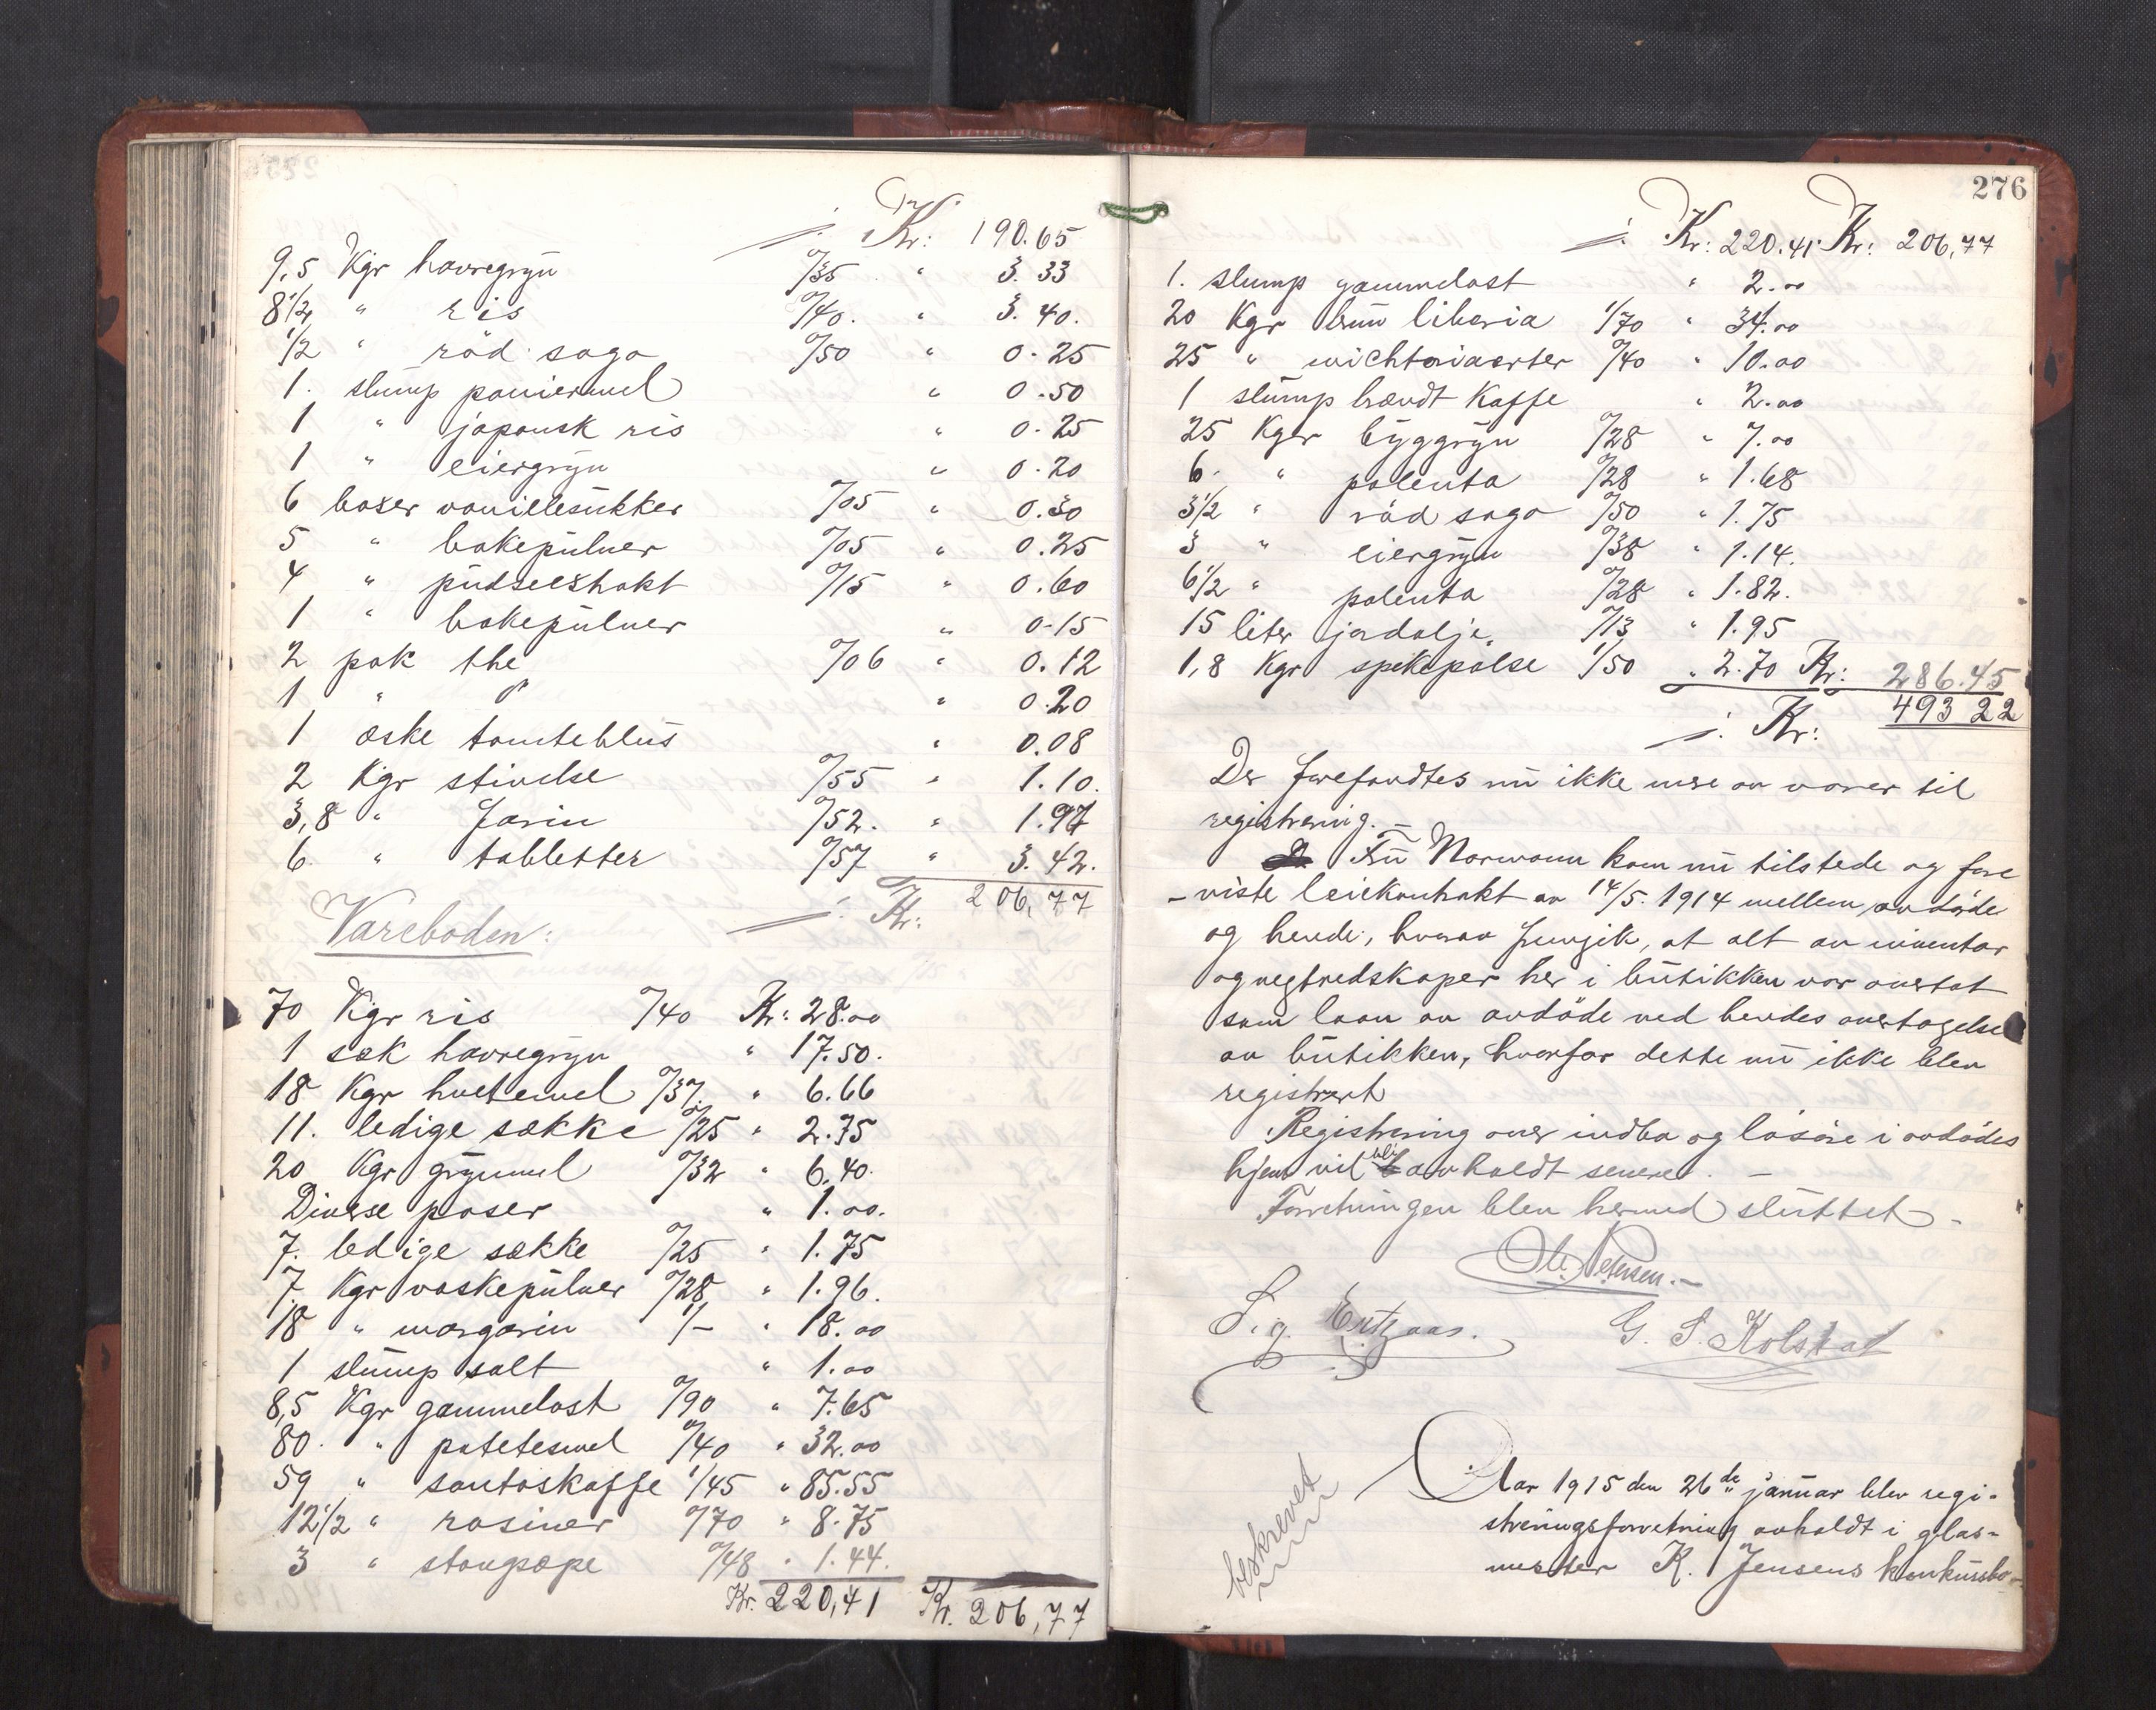 ÷ Kr: 190.65
9,5 Kgr havregryn 0/35 " 3.33
8 1/2 " ris 0/40. " 3.40.
1/2 " röd sago 0/50 " 0.25
1. slump paniermel " 0.50
1 " japansk ris " 0.25
1 " eiergryn " 0.20
6 boxer vanillesukker 0/05 " 0.30
5 " bakepulver 0/05 " 0.25
4 " pudseextrakt 0/15 " 0.60
1 " bakepulver " 0.15
2 pak the 0/06 " 0.12
1 " " " 0.20
1 æske tomteblus " 0.08
2 Kgr stivelse 0/55 " 1.10.
3,8 " farin 0/52. " 1.97
6. " tabletter 0/57 " 3.42.
÷ Kr: 206,77
Vareboden:
70 Kgr ris 0/40 Kr: 28.00
1 sæk havregryn " 17.50.
18 Kgr hvetemel 0/37. " 6.66
11. ledige sække 0/25 " 2.75
20 Kgr grynmel 0/32 " 6.40.
Diverse poser " 1.00.
7. ledige sække 0/25 " 1.75
7. Kgr vaskepulver 0/28 " 1.96.
18 " margarin 1/- " 18.00
1 slump salt " 1.00
8,5 Kgr gammelost 0/90 " 7.65
80. " potetesmel 0/40 " 32.00
59 " santoskaffe 1/45 " 85.55
12 1/2 " rosiner 0/70 " 8.75
3 " stangsæpe 0/48 " 1.44.
Kr. 220,41 Kr. 206,77
276
÷ Kr: 220.41 Kr: 206,77
1. slump gammelost " 2.00
20 Kgr brun liberia 1/70 " 34.00
25 " wichtoriaerter 0/40 " 10.00
1 slump brændt kaffe " 2.00
25 Kgr byggryn 0/28 " 7.00
6. " polenta 0/28 " 1.68
3 1/2 " röd sago 0/50 " 1.75
3 " eiergryn 0/38 " 1.14.
6 1/2 " polenta 0/28 " 1.82.
15 liter jordolje. 0/13 " 1.95
1,8 Kgr spekepölse 1/50 " 2.70 Kr: 286.45
÷ Kr: 493 22
Der forefandtes nu ikke mere av varer til
registrering. –
Fru Normann kom nu tilstede og fore
- viste leiekontrakt av 14/5. 1914 mellem avdöde
og hende, hvorav fremgik, at alt av inventar
og vegtredskaper her i butikken var overtat
som laan av avdöde ved hendes overtagelse
av butikken, hvorfor dette nu ikke blev
registrert
Registrering over indbo og lösöre i avdödes
hjem vil bli avholdt senere. –
Forretningen blev hermed sluttet –
Ole Petersen. –
Sig. G. S. Kolstad
beskrevet
Aar 1915 den 26de januar blev regi-
streringsforretning avholdt i glas-
mester K. Jensens konkursbo –